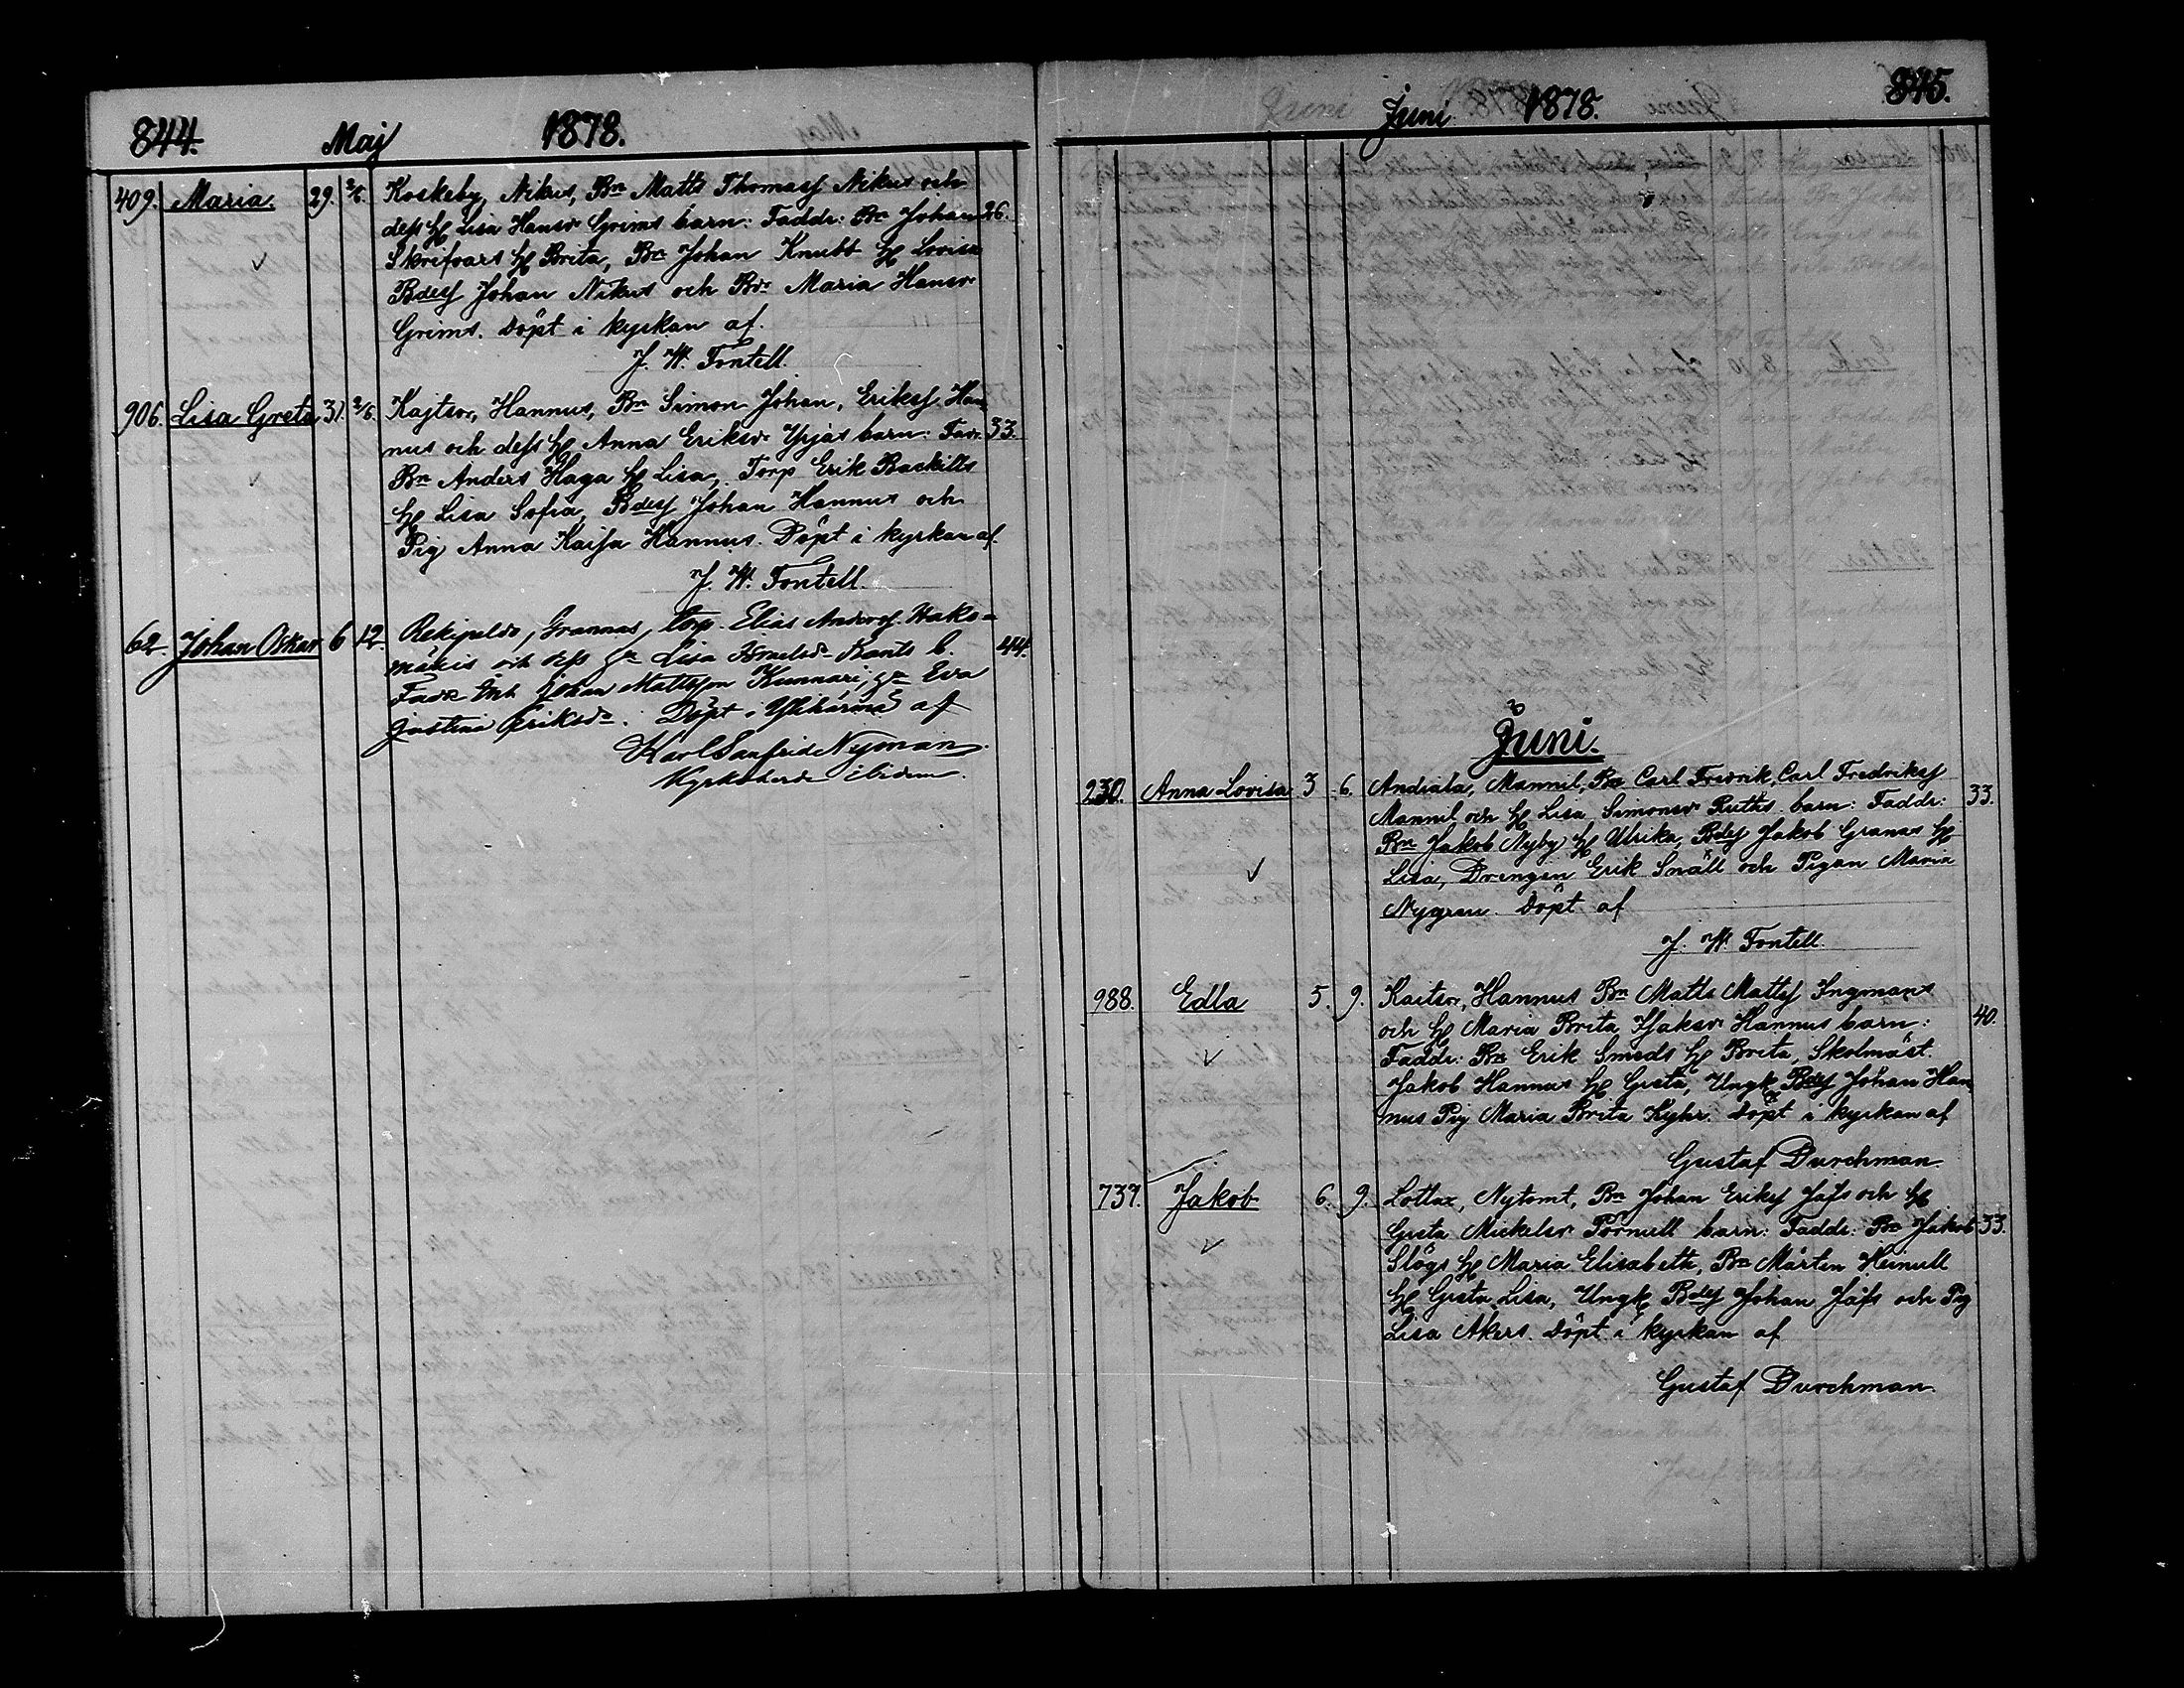 844. Maj 1878.
409. Maria. 29. 2/6. Koskeby, Nikus, Bn Matts Thomass Nikus och
dess H Lisa Hansdr Grims barn: Faddr: Bn Johan 26.
Skrifvars H Brita, Bn Johan Knubb H Lovisa
Bdess Johan Nikus och Bdr Maria Hansdr
Grims. Döpt i kyrkan af.
J. W. Fontell.
906. Lisa Greta 31. 2/6. Kajtsor, Hannus, Bn Simon Johan, Erikss Han-
nus och dess H Anna Eriksdr Yrjas barn: Fadr. 33.
Bn Anders Haga H Lisa, Torp Erik Backills
H Lisa Sofia, Bdess Johan Hannus och
Pig Anna Kaisa Hannus. Döpt i kyrkan af
J. W. Fontell.
62. Johan Oskar 6 12. Rekipeldo, Grannas, torp. Elias Anderss. Hako-
mäkis och dess hu Lisa Israelsdr Kants b. 44.
Fadr Inh Johan Mattsson Kunnari, hu Eva
Justina Eriksdr. Döpt i Ylihärmä af
Karl Sanfrid Nyman.
Kyrkoherde ibidem.
Juni 1878. 845.
Juni.
230. Anna Lovisa 3 6. Andiala, Mannil, Bn Carl Fredrik, Carl Fredrikss
Mannil och H Lisa Simonsdr Ruths barn: Faddr: 33.
Bn Jakob Nyby H Ulrika, Bdess Jakob Granas H
Lisa, Drengen Erik Snäll och Pigan Maria
Nygren. Döpt af
J. W. Fontell.
988. Edla 5. 9. Kaitsor, Hannus Bn Matts Mattss Ingmans
och H Maria Brita Isaksdr Hannus barn: 40.
Faddr: Bn Erik Smeds H Brita, Skolmäst.
Jakob Hannus H Greta, Ungk Bdess Johan Han
nus Pig Maria Brita Kyhr. Döpt i kyrkan af
Gustaf Durchman.
737. Jakob 6. 9. Lottax, Nytomt, Bn Johan Erikss Jåfs och H
Greta Mickelsdr Pörnull barn: Faddr: Bn Jakob 33.
Slögs H Maria Elisabeth, Bn Mårten Heinull
H Greta Lisa, Ungk Bdess Johan Jåfs och Pig
Lisa Åkers. Döpt i kyrkan af
Gustaf Durchman.